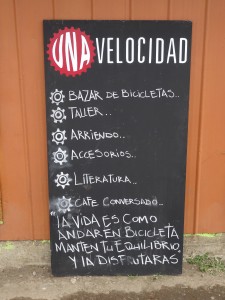 UNA VELOCIDAD
BAZAR DE BICICLETAS..
TALLER...
ARRIENDO..
ACCESORIOS..
LITERATURA..
CAFE CONVERSADO..
"LA VIDA ES COMO
ANDAR EN BICICLETA
MANTEN TU EQUILIBRIO
Y LA DISFRUTARAS